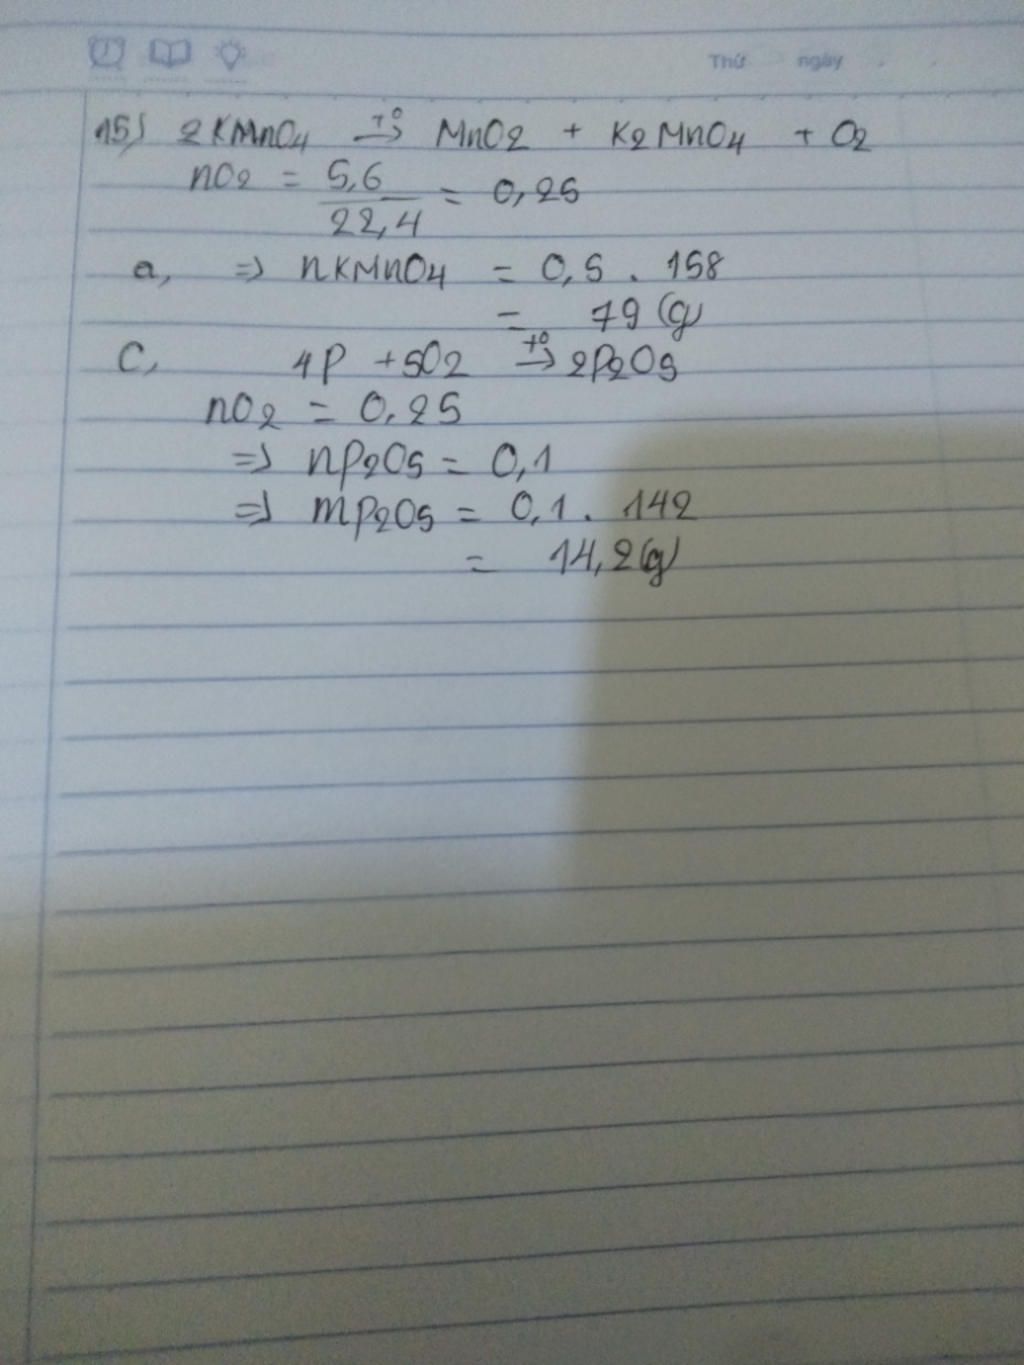 Thứ ngày
15) 2KMnO4 t° → MnO2 + K2MnO4 + O2
nO2 = 5,6 / 22,4 = 0,25
a, => nKMnO4 = 0,5 . 158
= 79 (g)
C, 4P + 5O2 t° → 2P2O5
nO2 = 0,25
=> nP2O5 = 0,1
=> mP2O5 = 0,1 . 142
= 14,2 (g)